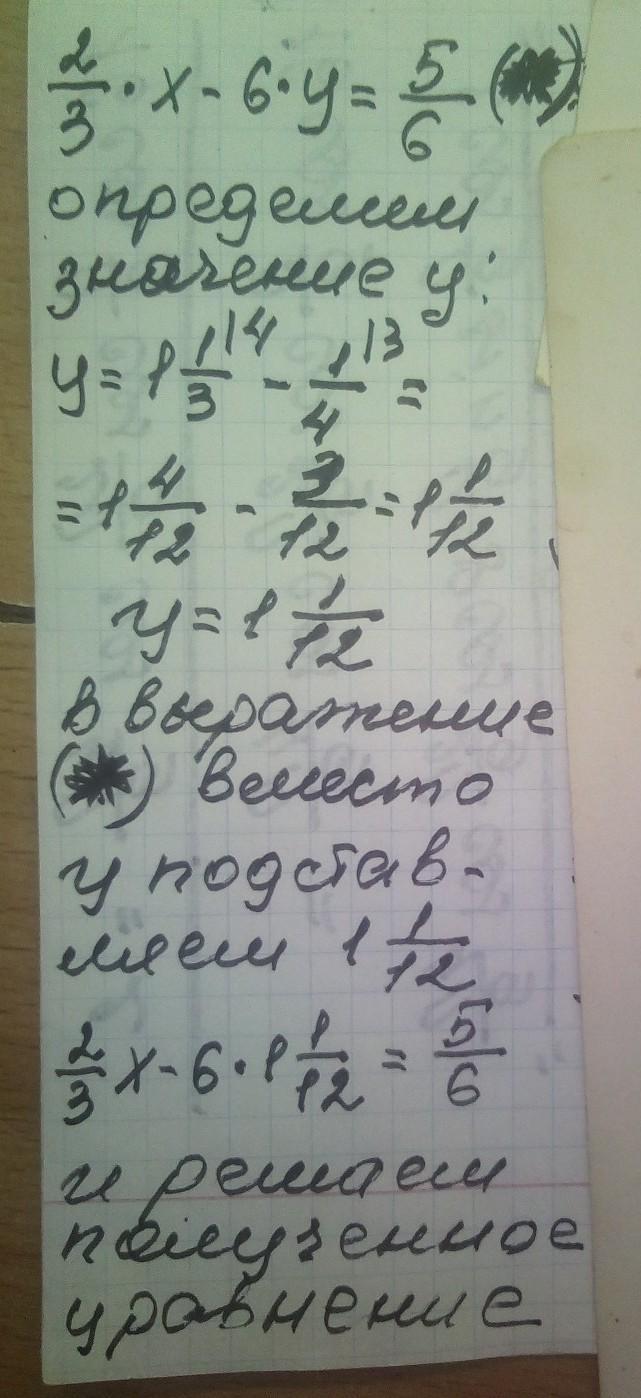 2/3 · x - 6 · y = 5/6 (*).
определим
значение y:
y = 1 1/3 |4 - 1/4 |3 =
= 1 4/12 - 3/12 = 1 1/12
y = 1 1/12
в выражение
(*) вместо
y подстав-
ляем 1 1/12
2/3 x - 6 · 1 1/12 = 5/6
и решаем
полученное
уравнение